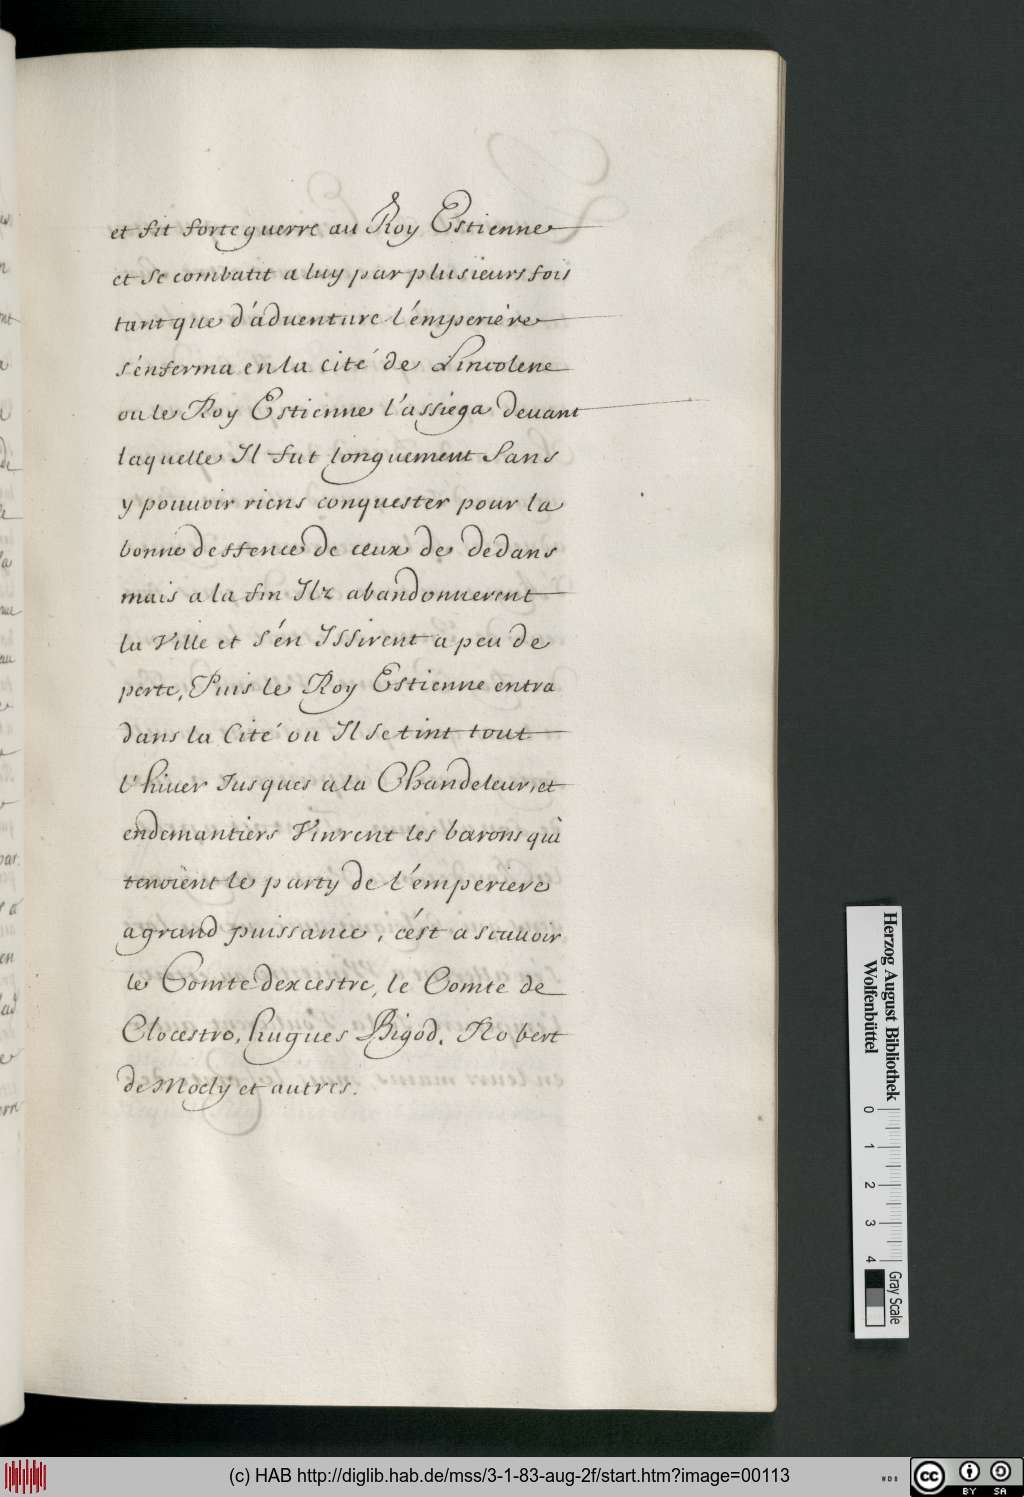 et fit forte guerre au Roy Estienne
et se combatit a luy par plusieurs fois
tant que d'adventure l'émperière
s'énferma en la cité de Lincolene
ou le Roy Estienne l'assiega devant
laquelle Il fut longuement sans
y pouuoir riens conquester pour la
bonne deffence de ceux de dedans
mais a la fin Ilz abandonnerent
la Ville et s'én Issirent a peu de
perte, Puis le Roy Estienne entra
dans la Cité ou Il se tint tout
l'hiuer Jusques a la Chandeleur, et
endemantiers Vinrent les barons qui
tenoient le party de l'émperiere
a grand puissance, cést a scauoir
le Comte dexcestre, le Comte de
Clocestre, hugues Bigod, Robert
de Mocly et autres.
Herzog August Bibliothek
Wolfenbüttel
0 1 2 3 4
Gray Scale
(c) HAB http://diglib.hab.de/mss/3-1-83-aug-2f/start.htm?image=00113
WDB
cc BY SA